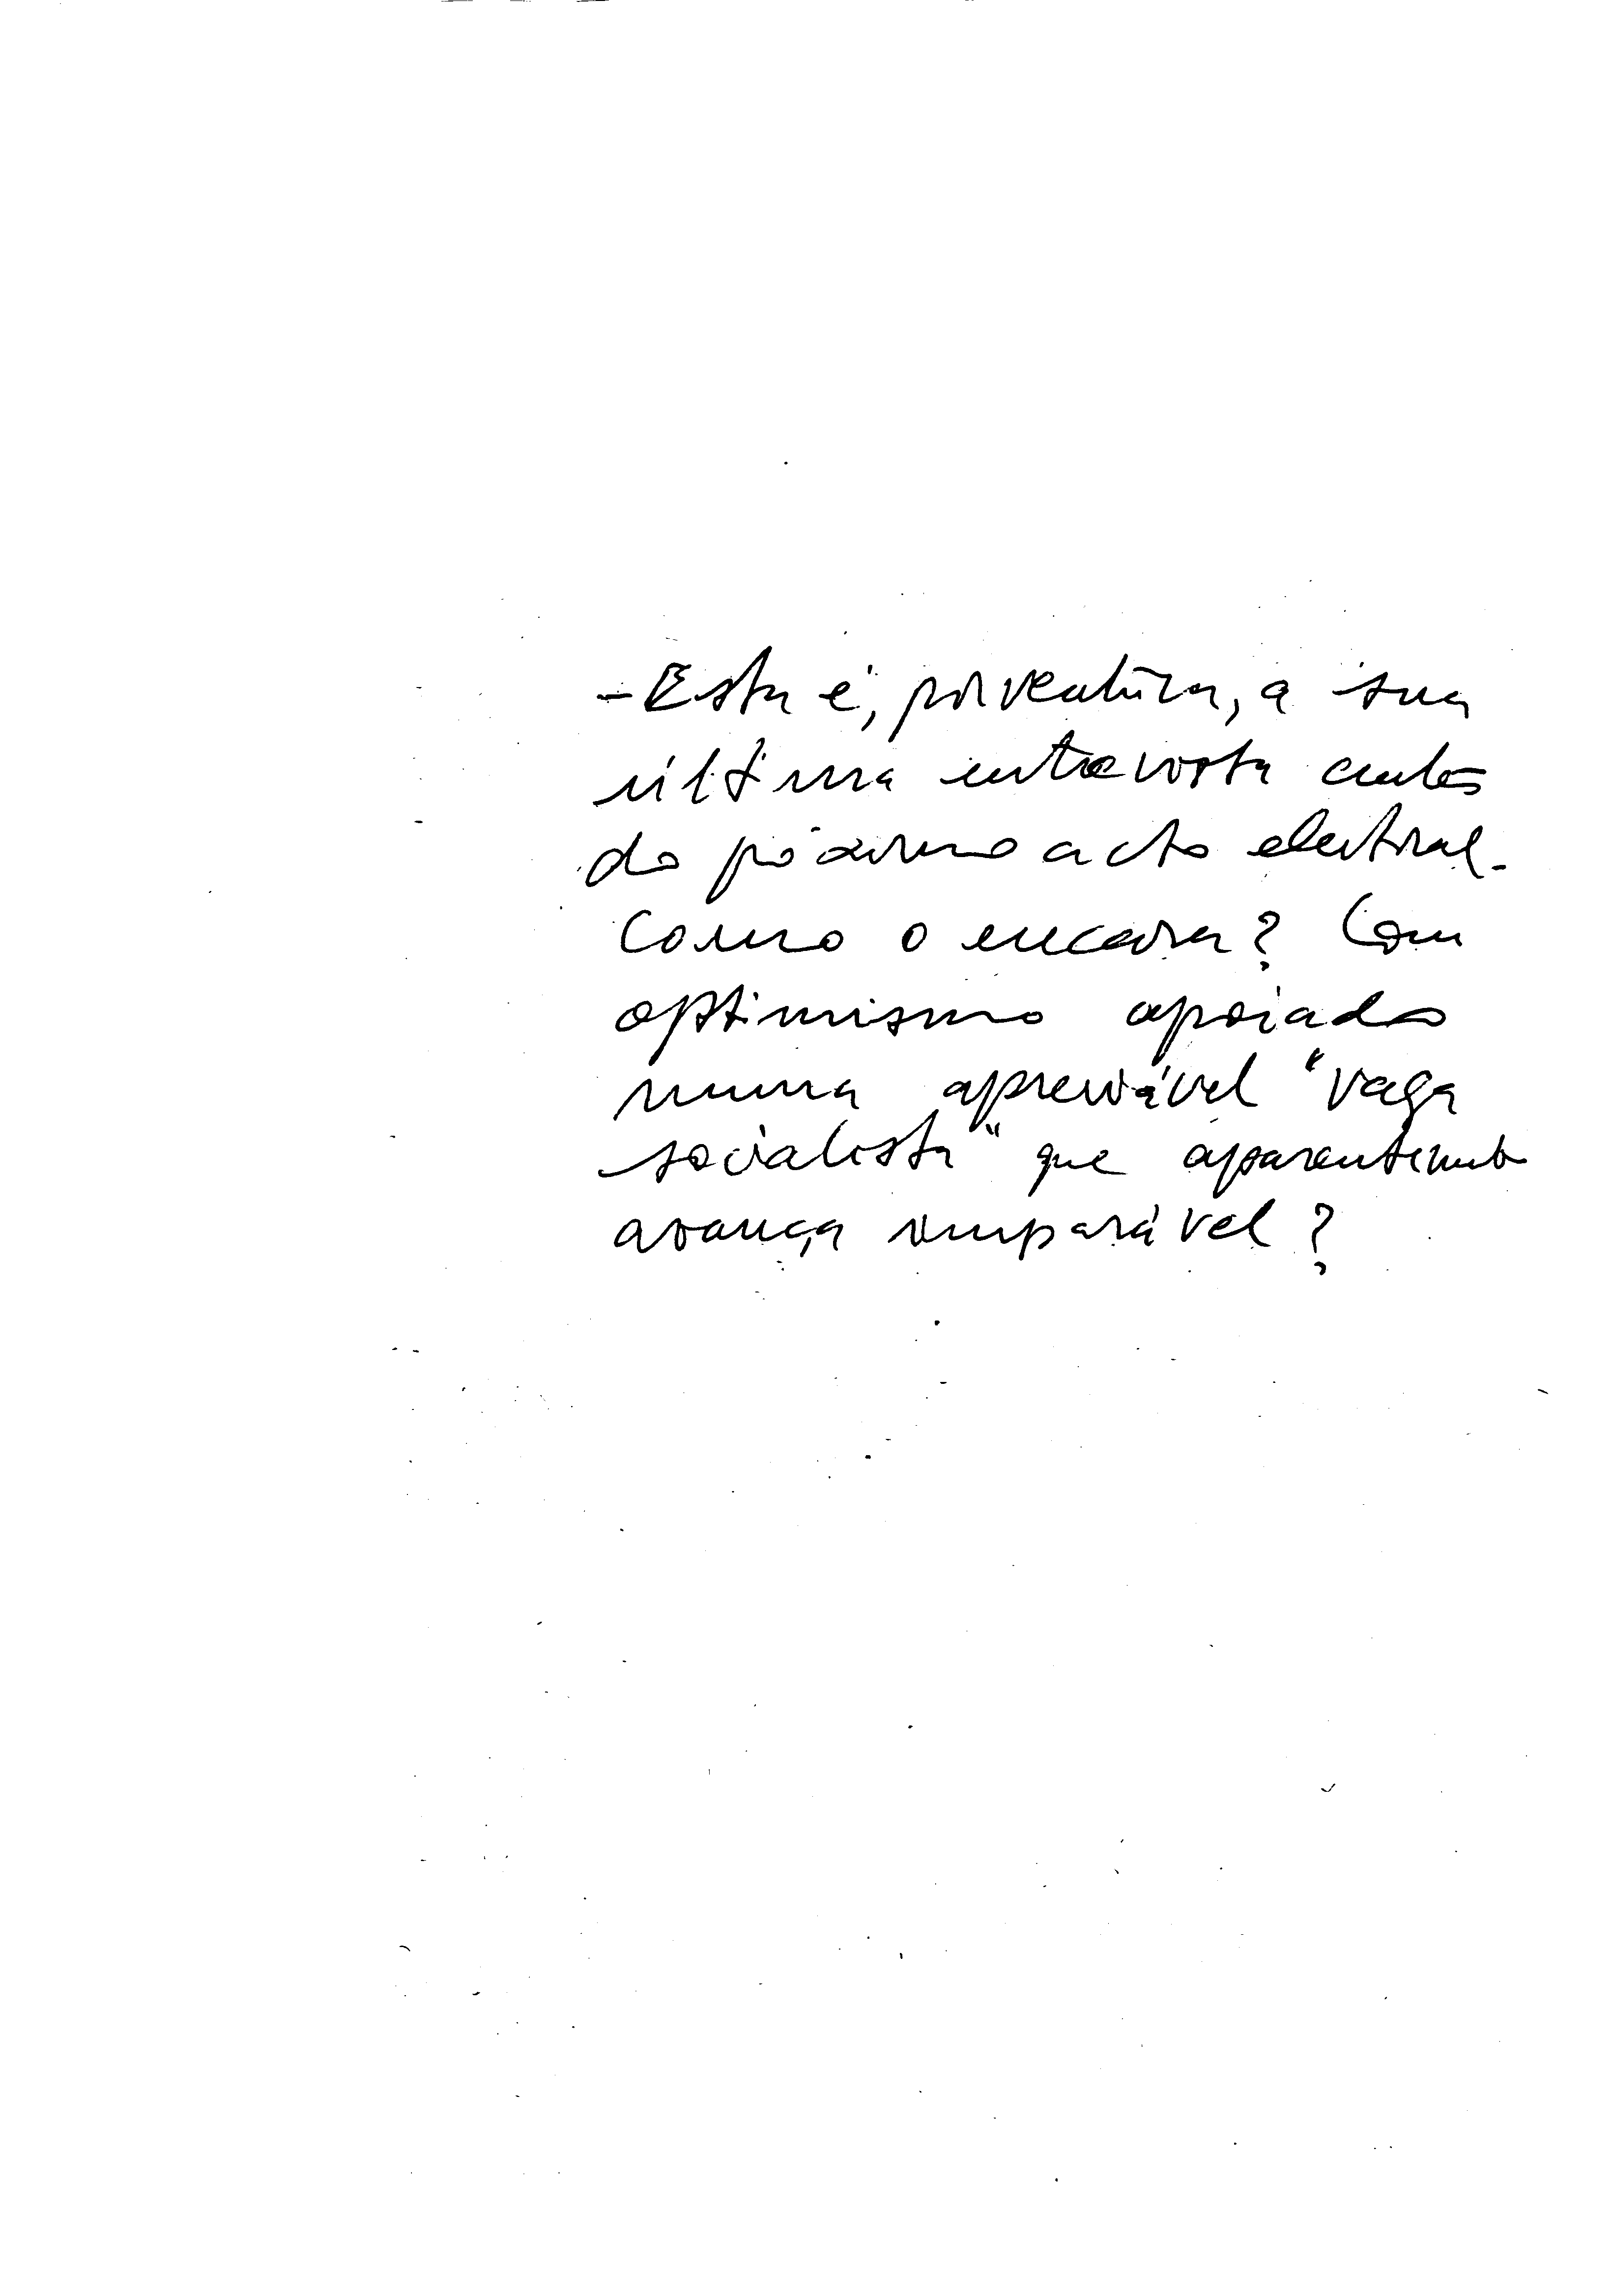 - Esta é, porventura, a sua
última entrevista antes
do próximo acto eleitoral.
Como o encara? Com
optimismo apoiado
numa apreciável "vaga
socialista" que aparentemente
avança imparável?